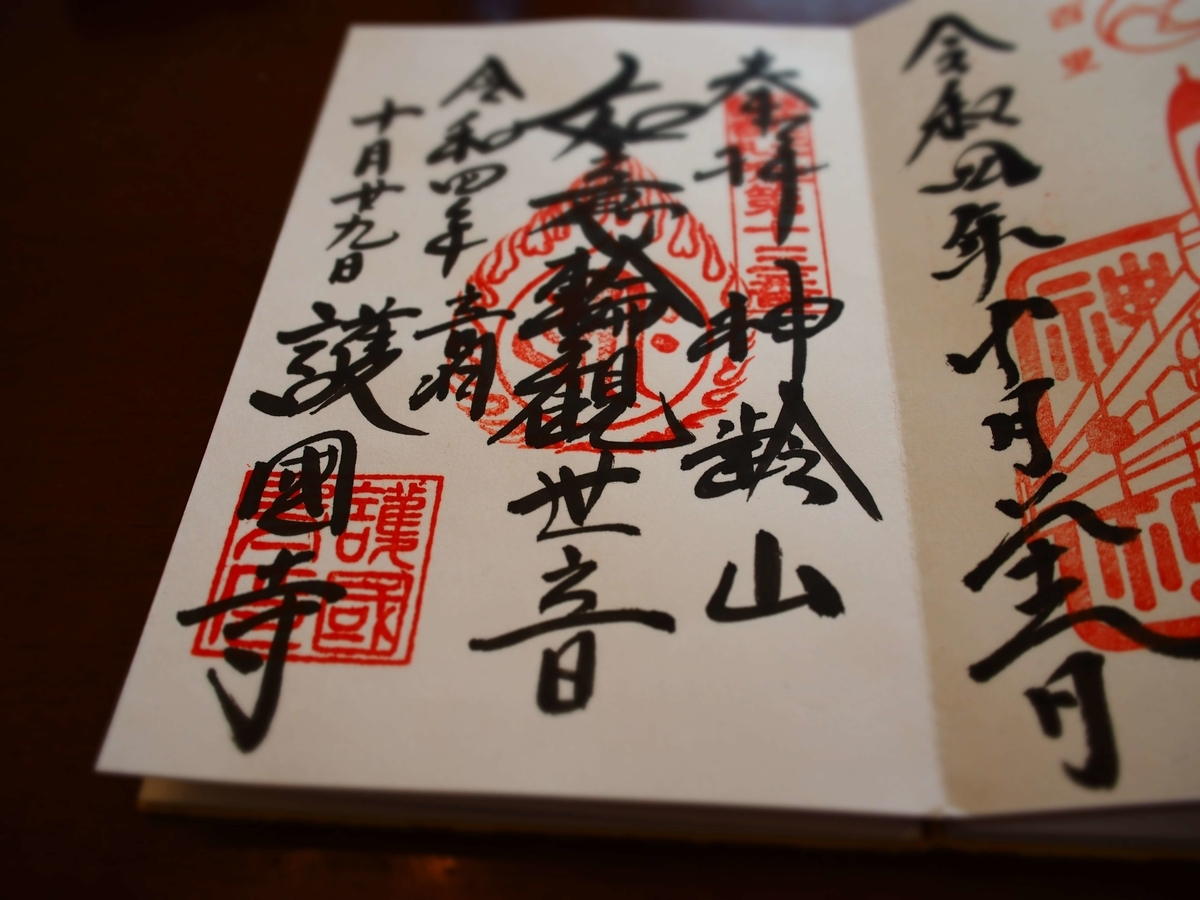 令和四年十月
奉拝 神齢山
第十三番
如意輪観世音
令和四年 音羽
十月廿九日
護國寺
護國